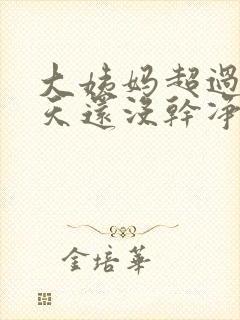 大姨妈超過
天還沒幹净
金培華